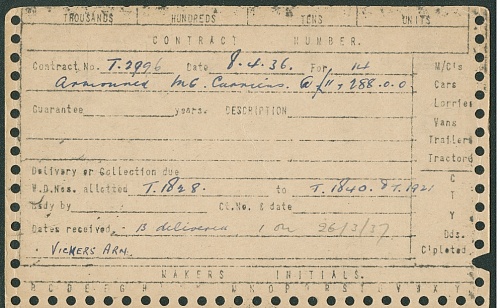 THOUSANDS HUNDREDS TENS UNITS
CONTRACT NUMBER.
Contract No. T.2996 Date 8.4.36. For 14 M/C's
Armoured M.G. Carriers. @ £11,288.0.0 Cars
Lorries
Guarantee years. DESCRIPTION Vans
Trailers
Tractors
Delivery or Collection due
W.D.Nos. allotted T.1828. to T.1840. & T.1921 C
T
Body by Ct.No. & date Y
Dates received. 13 delivered, 1 on 26/3/37 Dds.
Vickers Arm. C'pleted
MAKERS INITIALS.
B C D E F G H M N O P Q R S T U V W X Y